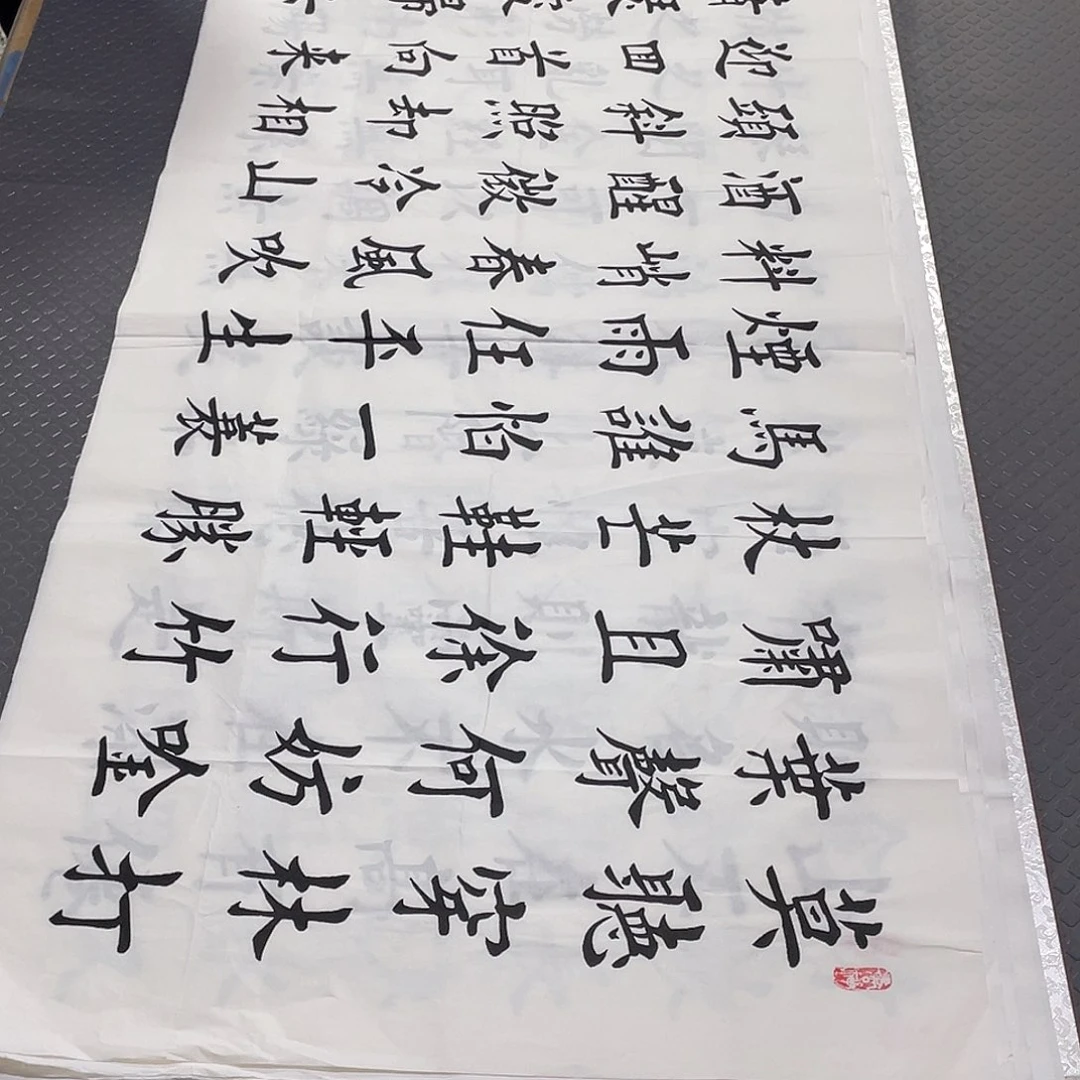 莫聽穿林打
葉聲何妨吟
嘯且徐行竹
杖芒鞋輕勝
馬誰怕一蓑
煙雨任平生
料峭春風吹
酒醒微冷山
頭斜照却相
迎回首向来